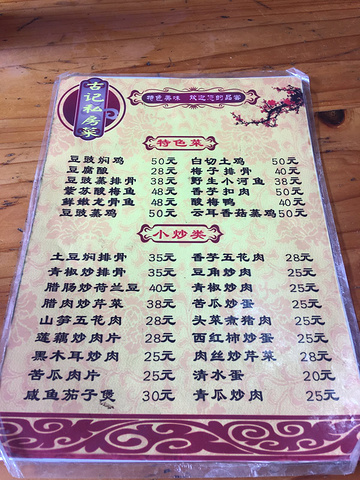 古记私房菜
特色美味 欢迎您的品尝
特色菜
豆豉焖鸡 50元 白切土鸡 50元
豆腐酸 28元 梅子排骨 40元
豆豉蒸排骨 38元 野生小河鱼 38元
紫苏酸梅鱼 48元 香芋扣肉 50元
鲜嫩龙骨鱼 48元 酸梅鸭 40元
豆豉蒸鸡 50元 云耳香菇蒸鸡 50元
小炒类
土豆焖排骨 35元 香芋五花肉 28元
青椒炒排骨 35元 豆角炒肉 25元
腊肠炒荷兰豆 40元 青椒炒肉 25元
腊肉炒芹菜 38元 苦瓜炒蛋 25元
山笋五花肉 28元 头菜煮猪肉 25元
莲藕炒肉片 28元 西红柿炒蛋 25元
黑木耳炒肉 25元 肉丝炒芹菜 28元
苦瓜肉片 25元 清水蛋 20元
咸鱼茄子煲 30元 青瓜炒肉 25元